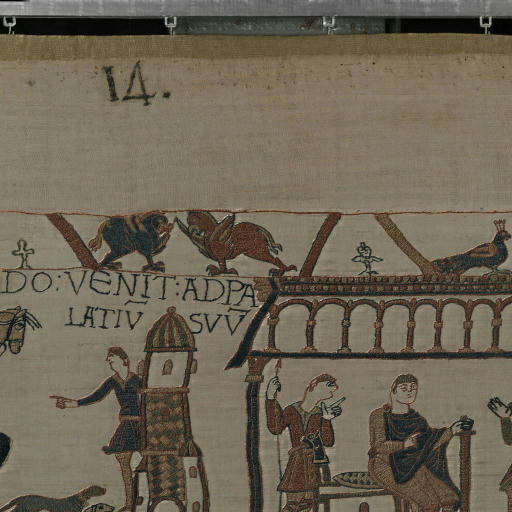 14.
DO: VENIT: AD PA
LATIŪ SVV̄